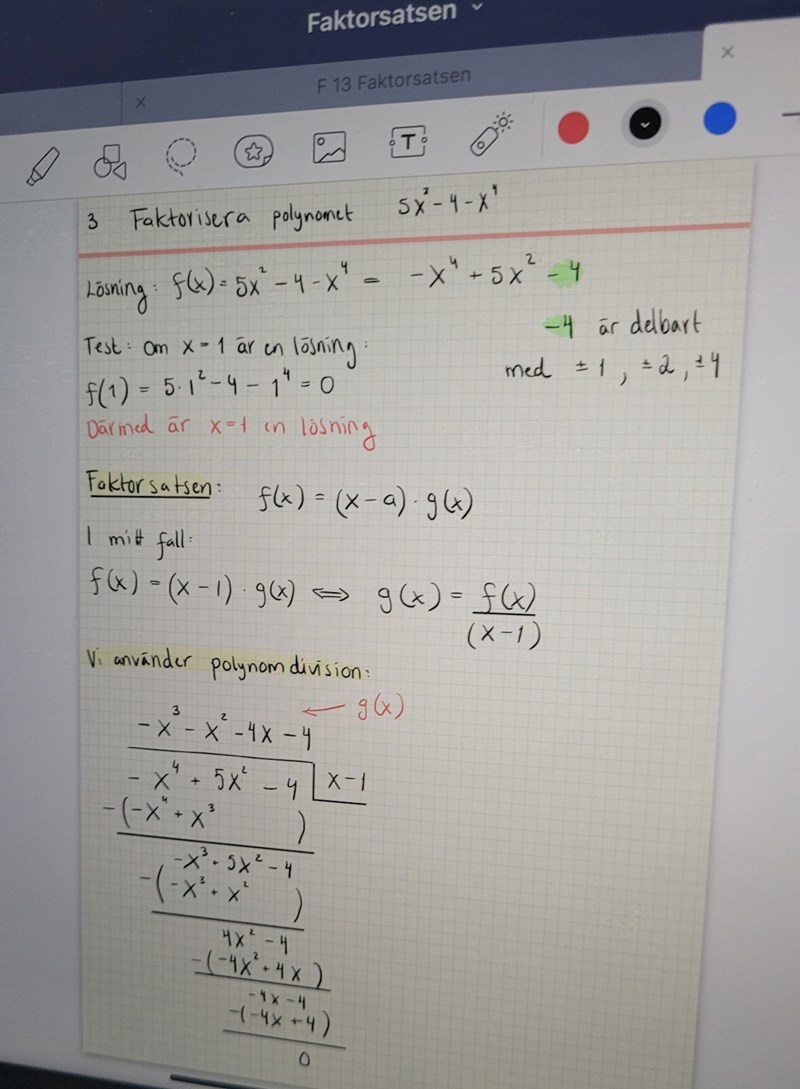 Faktorsatsen
F 13 Faktorsatsen
T
3 Faktorisera polynomet 5x² - 4 - x⁴
Lösning: f(x) = 5x² - 4 - x⁴ = -x⁴ + 5x² - 4
-4 är delbart
med ±1, ±2, ±4
Test: om x = 1 är en lösning:
f(1) = 5·1² - 4 - 1⁴ = 0
Därmed är x=1 en lösning
Faktorsatsen: f(x) = (x-a)·g(x)
I mitt fall:
f(x) = (x-1)·g(x) ⟺ g(x) = f(x)/(x-1)
Vi använder polynomdivision:
← g(x)
-x³ - x² - 4x - 4
-x⁴ + 5x² - 4 | x-1
-(-x⁴ + x³ )
-x³ + 5x² - 4
-(-x³ + x² )
4x² - 4
-(-4x² + 4x )
-4x - 4
-(-4x + 4)
0